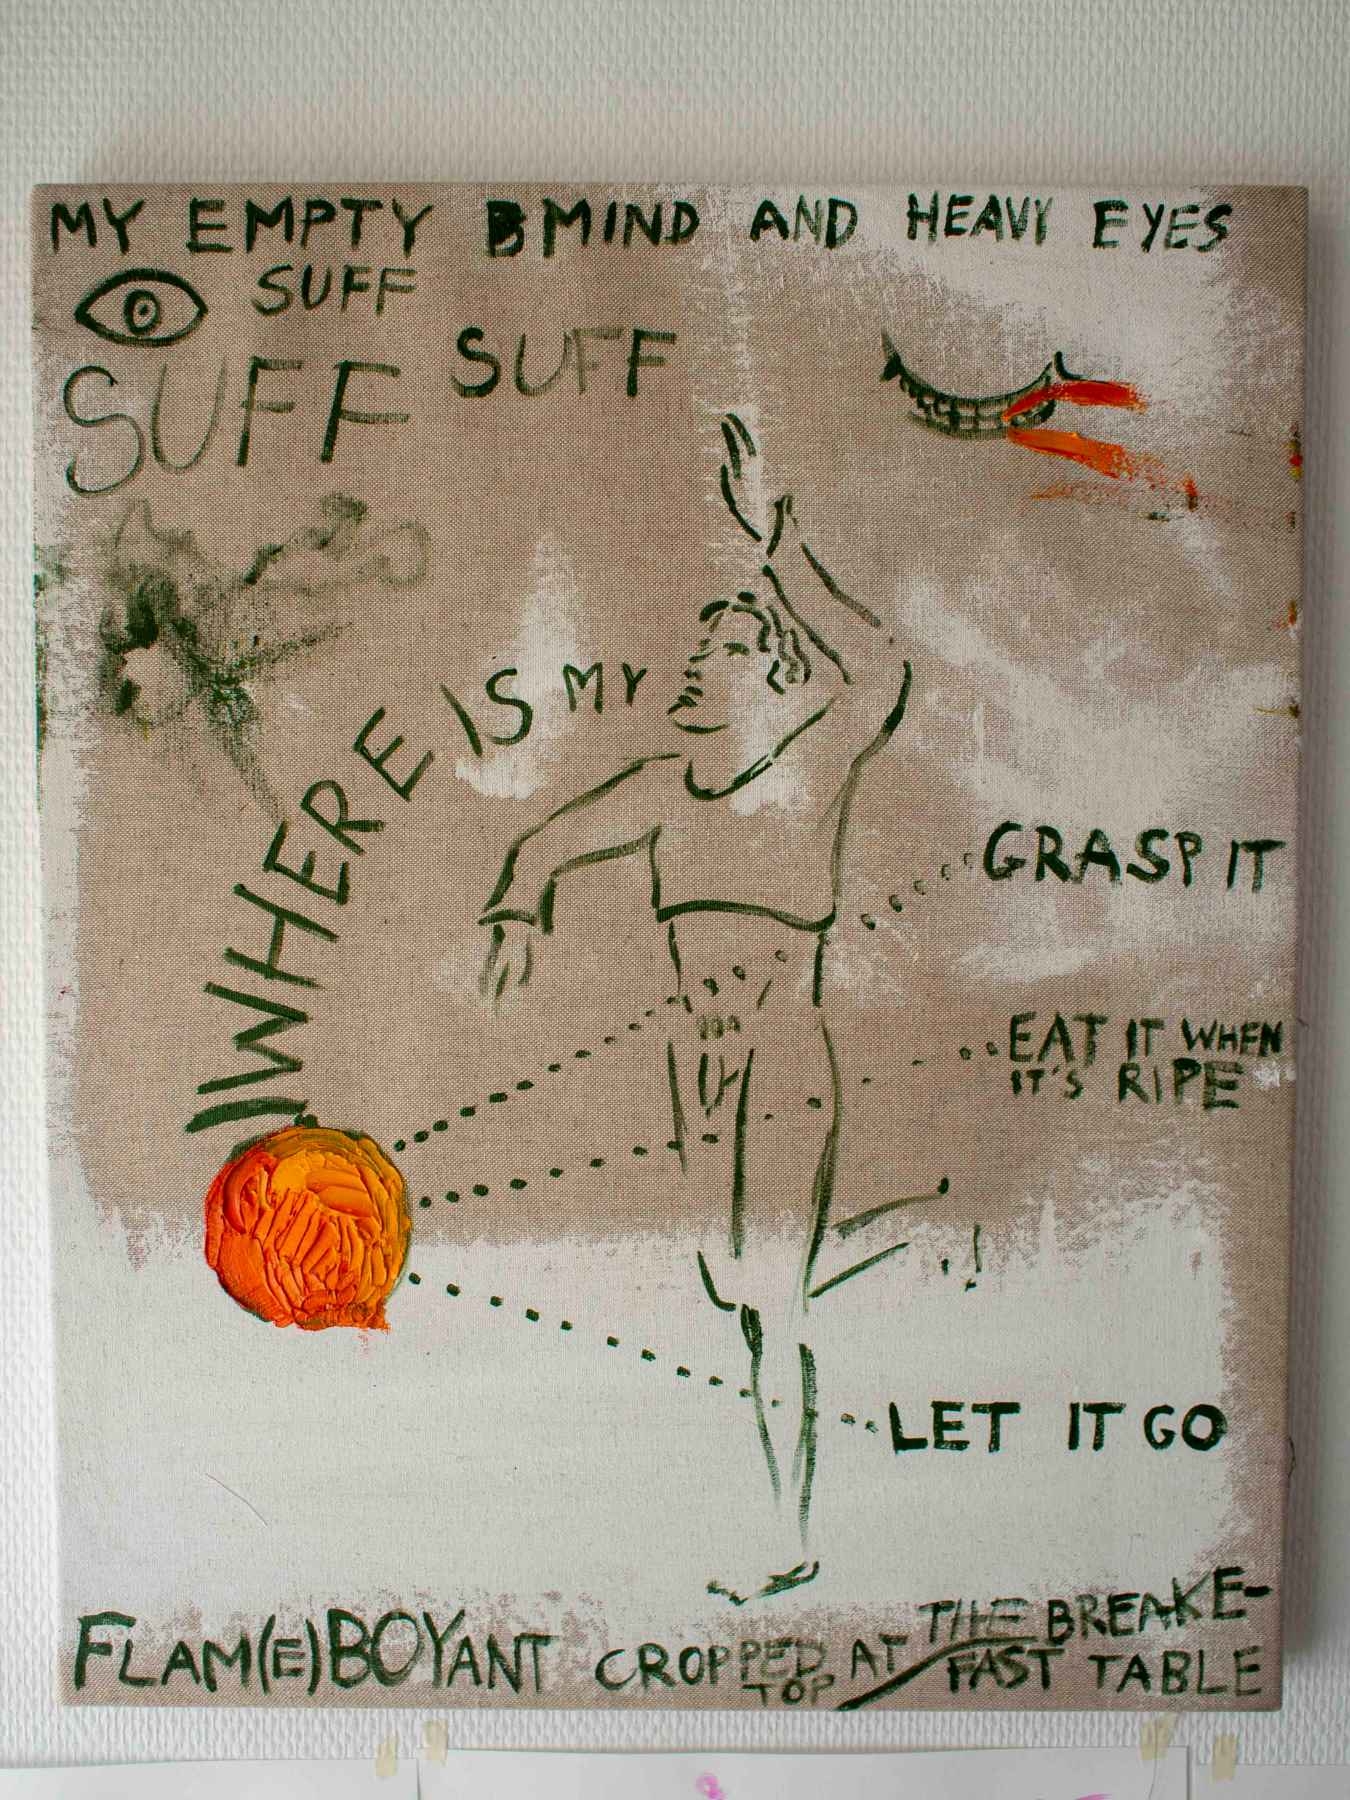 MY EMPTY BMIND AND HEAVY EYES
SUFF
SUFF
SUFF
WHERE IS MY
GRASP IT
EAT IT WHEN
IT'S RIPE
LET IT GO
FLAM(E)BOYANT CROPPED TOP AT THE BREAKE-
FAST TABLE